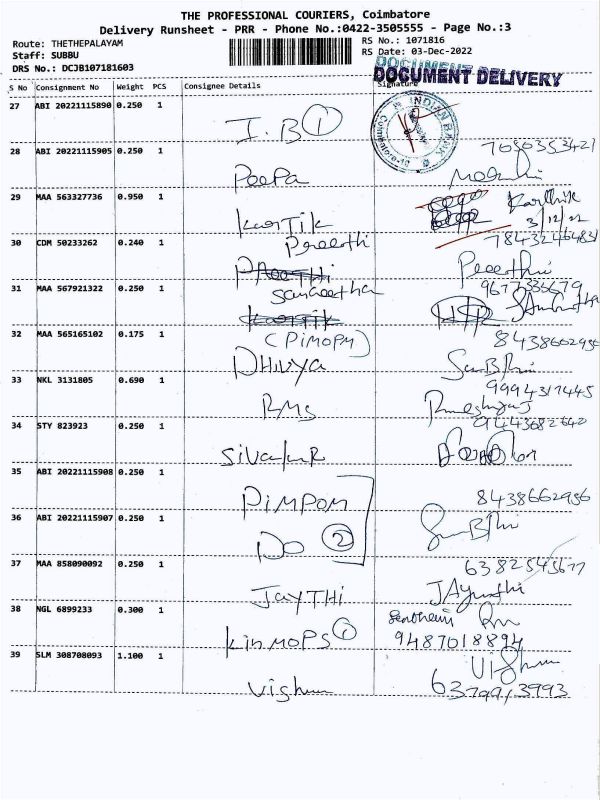 THE PROFESSIONAL COURIERS, Coimbatore
Delivery Runsheet - PRR - Phone No.:0422-3505555 - Page No.:3
Route: THETHEPALAYAM
RS No.: 1071816
Staff: SUBBU
RS Date: 03-Dec-2022
DRS No.: DCJB107181603
DOCUMENT DELIVERY
S No Consignment No Weight PCS Consignee Details Signature
27 ABI 20221115890 0.250 1
I.B 1
INDIAN BANK
28 ABI 20221115905 0.250 1
7650353421
PooPa
29 MAA 563327736 0.950 1
Karthik
3/12/22
KarTik
30 CDM 50233262 0.240 1
Preethi
PreeTHi
Preethi
31 MAA 567921322 0.250 1
9677336679
Sangeetha
KarTik
32 MAA 565165102 0.175 1
(PiMOPM)
8438662956
DHivya
33 NKL 3131805 0.690 1
9994317445
RMS
34 STY 823923 0.250 1
9443682640
Sivakur
35 ABI 20221115908 0.250 1
PiMPOM
8438662956
36 ABI 20221115907 0.250 1
DO 2
37 MAA 858090092 0.250 1
6382545677
JayTHi
JAyanthi
38 NGL 6899233 0.300 1
KinMOPS 1
9487018894
39 SLM 308708093 1.100 1
Vishnu
Vishnu
63799/3993